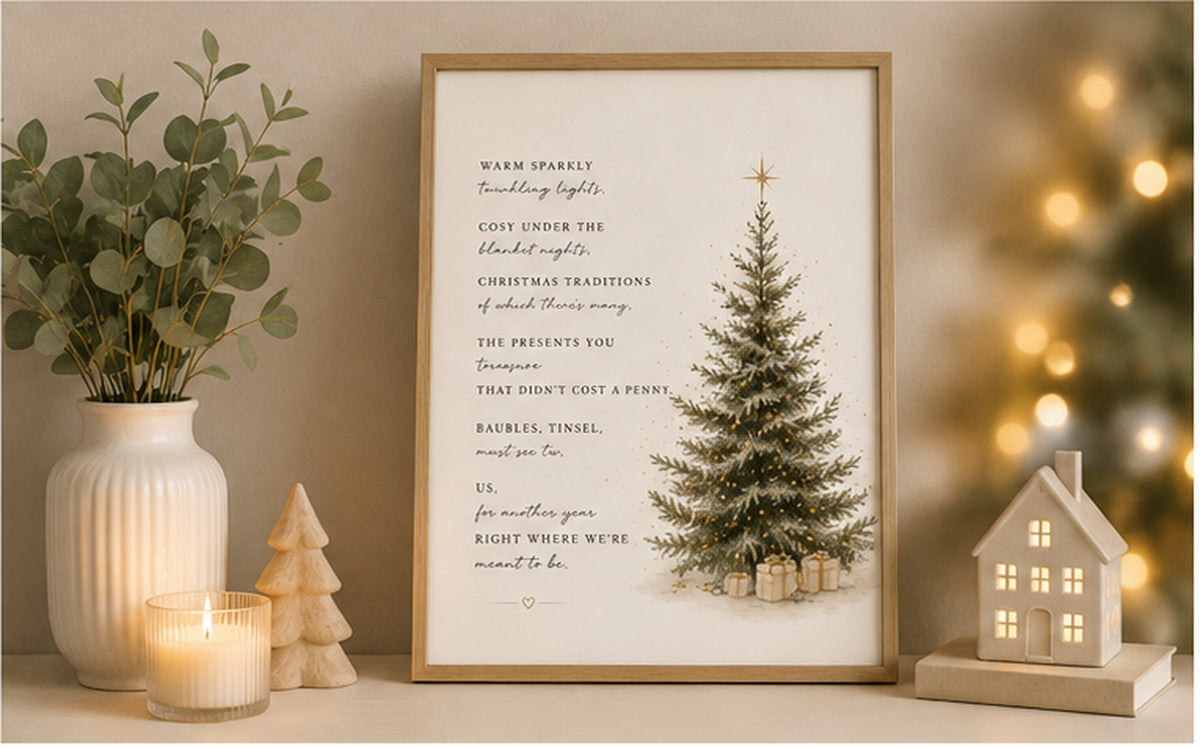 WARM SPARKLY
lights,
COSY UNDER THE
blanket nights,
CHRISTMAS TRADITIONS
of which there's many,
THE PRESENTS YOU
THAT DIDN'T COST A PENNY,
BAUBLES, TINSEL,
must see
US,
for another year
RIGHT WHERE WE'RE
meant to be.